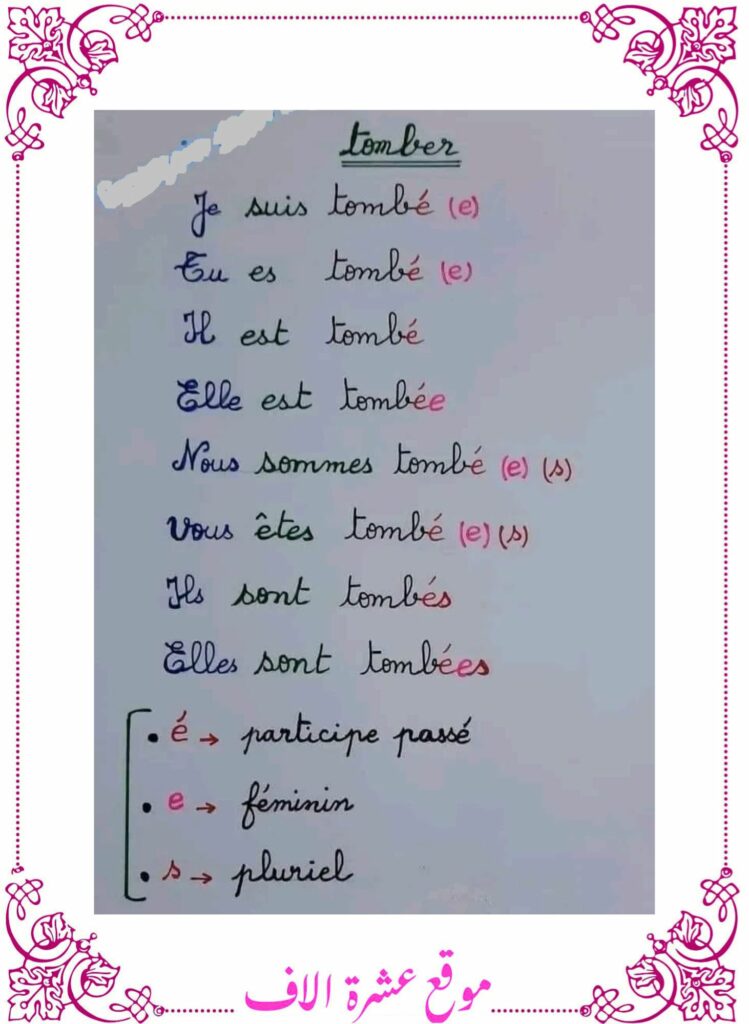 tomber
Je suis tombé (e)
Tu es tombé (e)
Il est tombé
Elle est tombée
Nous sommes tombé (e) (s)
Vous êtes tombé (e) (s)
Ils sont tombés
Elles sont tombées
• é → participe passé
• e → féminin
• s → pluriel
موقع عشرة الاف